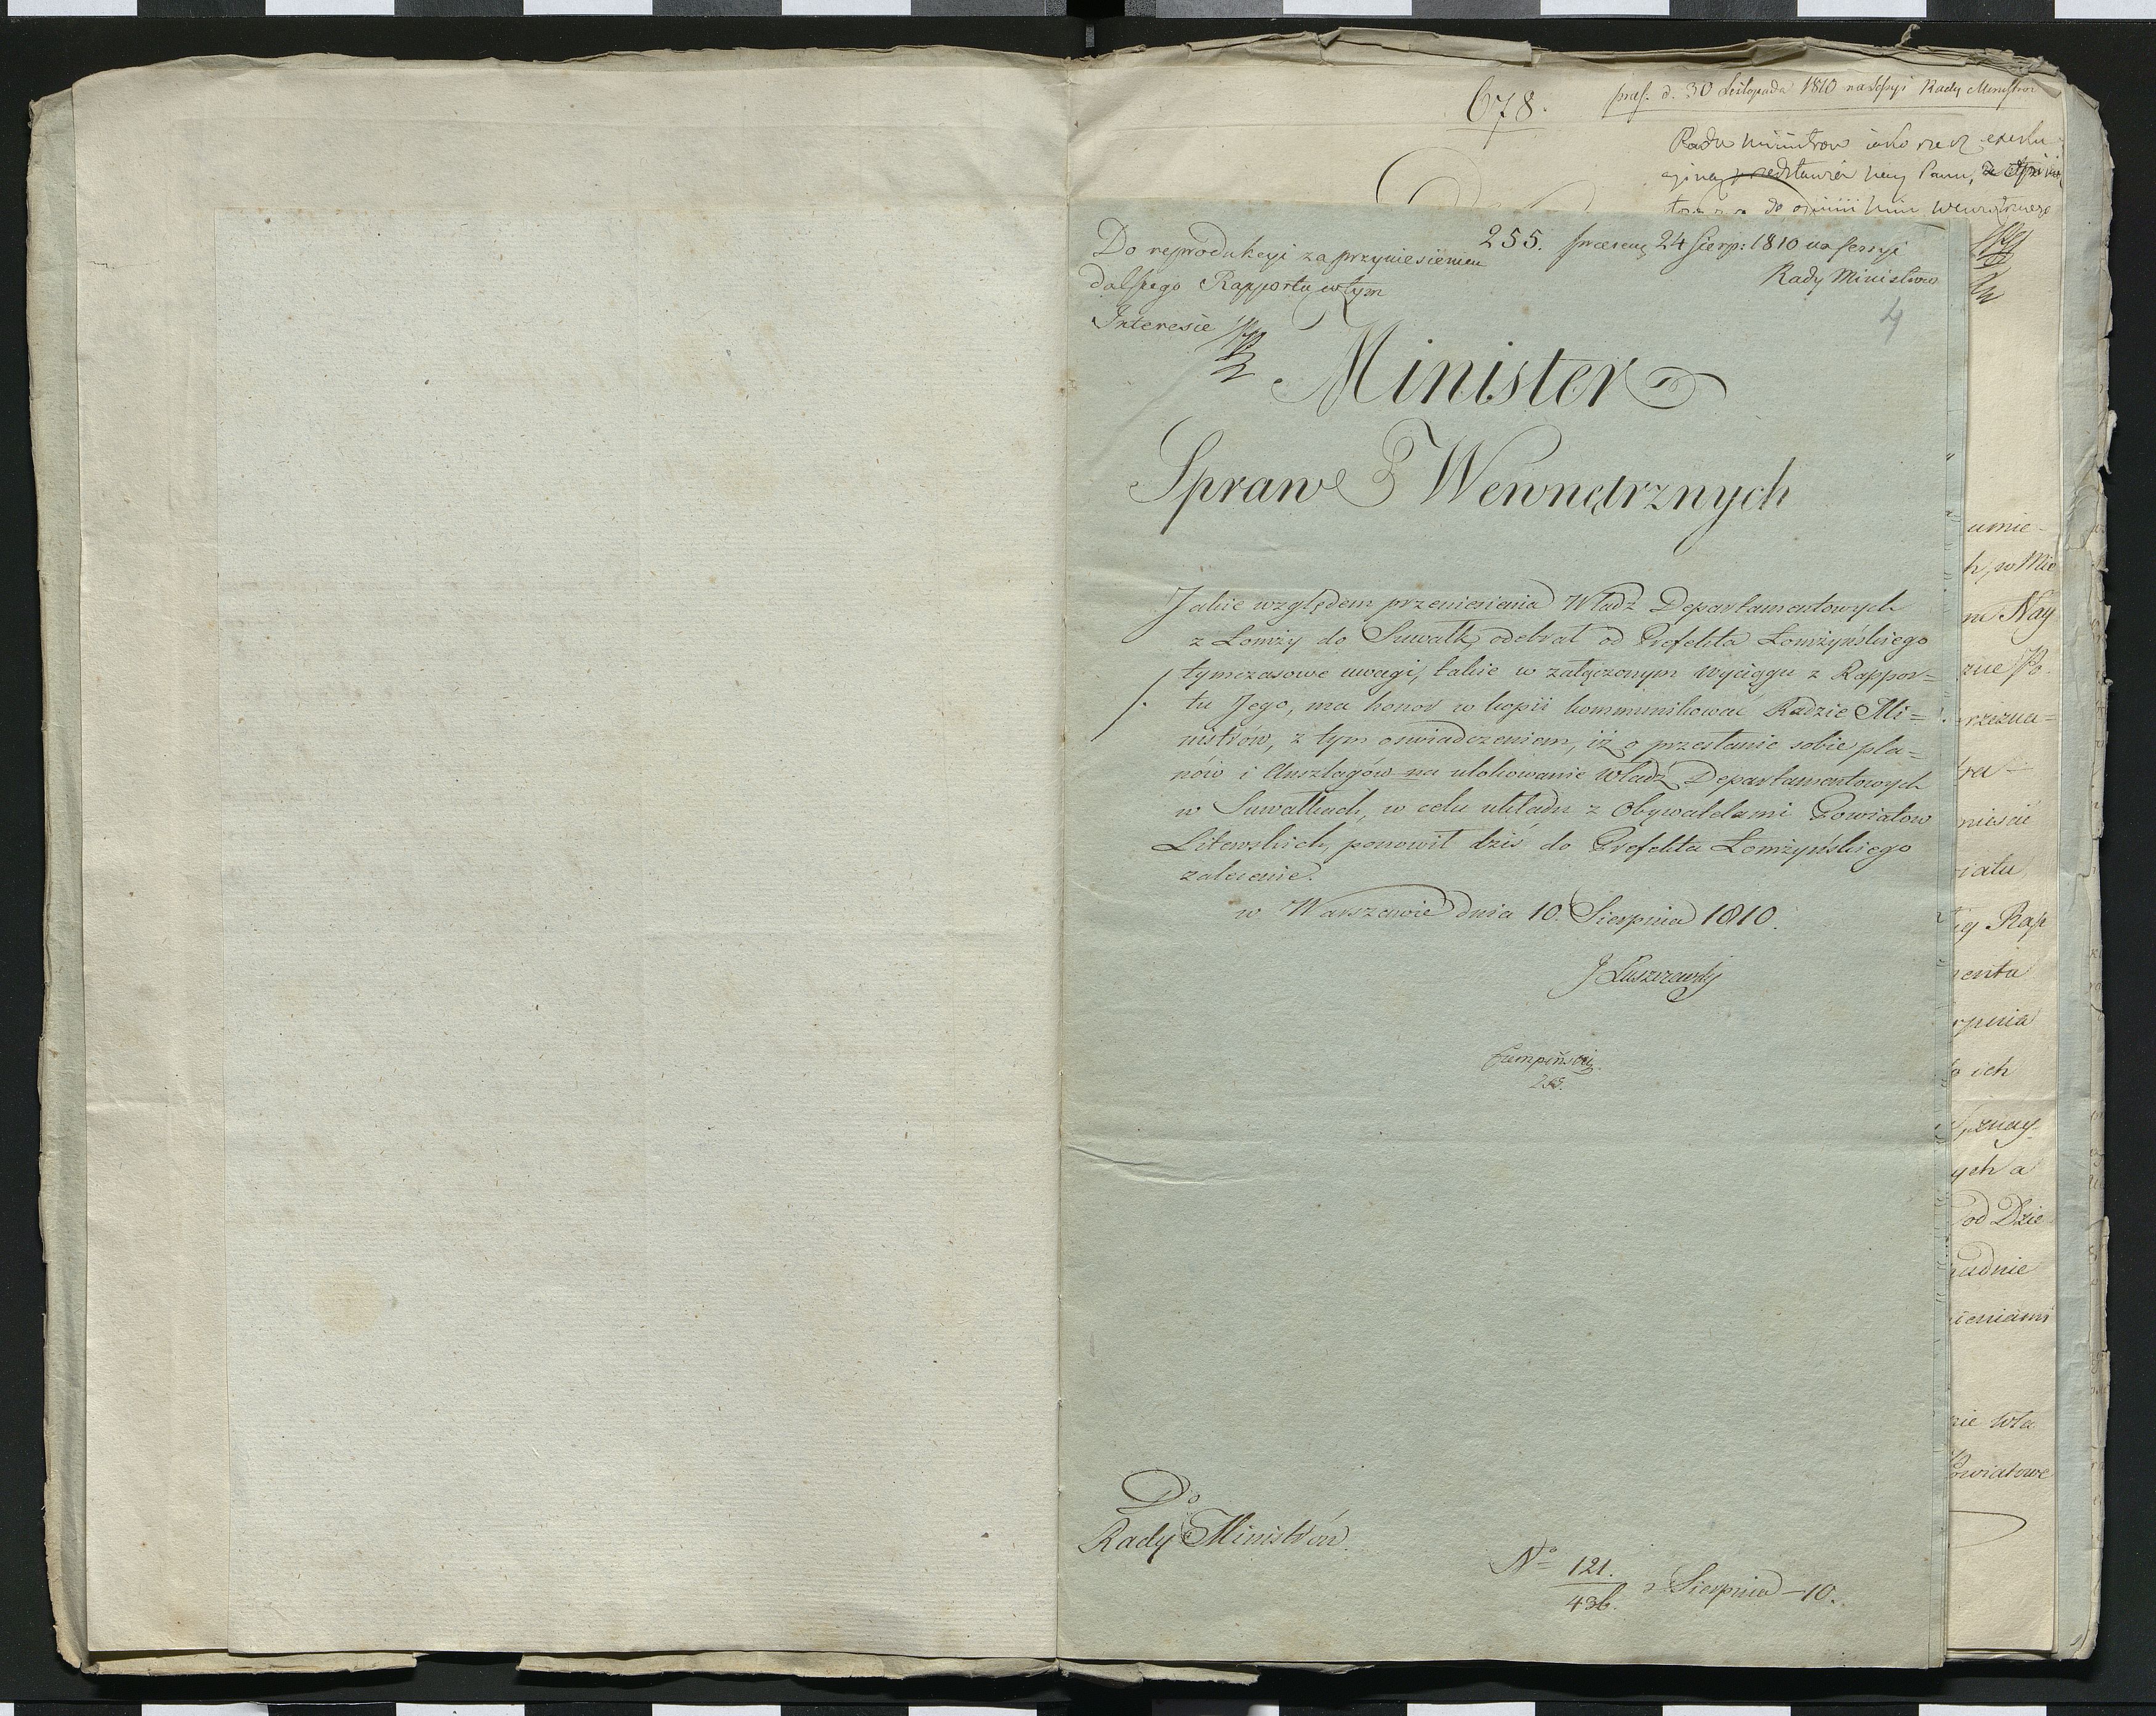 678.
præs. d. 30 Listopada 1810 na Sessyi Rady Ministrów
Rada Ministrów jako rzecz exeku-
cyiną przedstawia Nay. Panu,
do opinii Min. Wewnętrznego
255. præsent. 24 Sierp: 1810 na sessyi
Rady Ministrów
Do reprodukcyi za przyniesieniem
dalszego Rapportu w tym
Interesie
4
Minister
Spraw Wewnętrznych
Jakie względem przeniesienia Władz Departamentowych
z Łomży do Suwałk, odebrał od Prefekta Łomżyńskiego
tymczasowe uwagi, takie w załączonym wyciągu z Rappor=
tu Jego, ma honor w kopii kommunikować Radzie Mi=
nistrów, z tym oswiadczeniem, iż o przesłanie sobie pla=
nów i Anszlagów na ulokowanie Władz Departamentowych
w Suwałkach, w celu układu z Obywatelami Powiatow
Litewskich, ponowił dziś do Prefekta Łomżyńskiego
zalecenie.
w Warszawie dnia 10. Sierpnia 1810.
J Łuszczewski
Do
Rady Ministrów.
No 121./436. z Sierpnia - 10.
umie-
h, w Mie
m Nay
zne Po
rzezna=
tra-
miescie
iatu
ey Rap
menta
rpnia
o ich
znay-
ych a
od Dzie
adnie
ieniami
nie Wła
Powiatowe